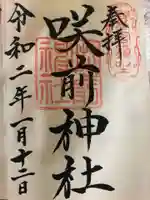 奉拝
咲前神社
令和二年一月十二日